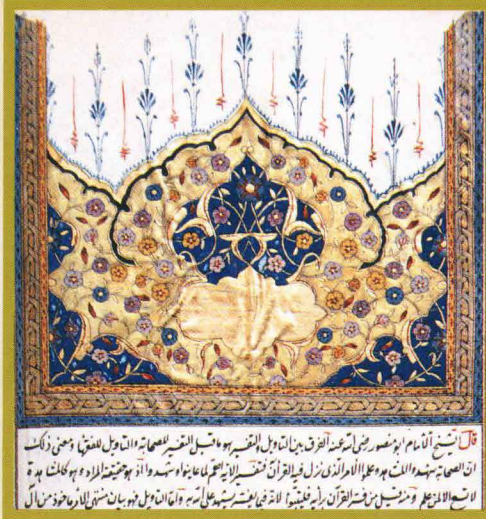 قال الشيخ الامام ابو منصور رضى الله عنه الفرق بين التاويل والتفسير هو ما قيل التفسير للصحابة والتاويل للفقهاء ومعنى ذلك
ان الصحابة شهدوا المشاهد وعلموا الامر الذى نزل فيه القرآن فتفسير الاية اهم لما عاينوا وشهدوا اذ هو حقيقة المراد وهو كالمشاهدة
لا تسع الا لمن علم ومنه قيل من فسر القرآن برأيه فليتبوأ لانه فيما يفسر يشهد على الله به واما التاويل فهو بيان منتهى الامر ماخوذ من ال